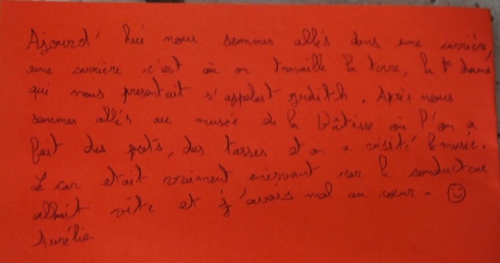 Ajourd' hui nous sommes allés dans une carrière,
une carrière c'est où on travaille la terre, la dame
qui nous présentait s'appelait Judith. Après nous
sommes allés au musée de la Bâtisse où l'on a
fait des pots, des tasses et on a visité le musée.
Le car etait vraiment enervant car le conducteur
allait vite et j'avais mal au cœur.
Aurélie